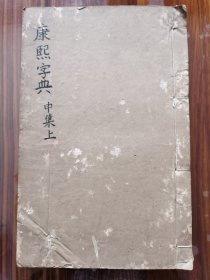 康熙字典
申集上